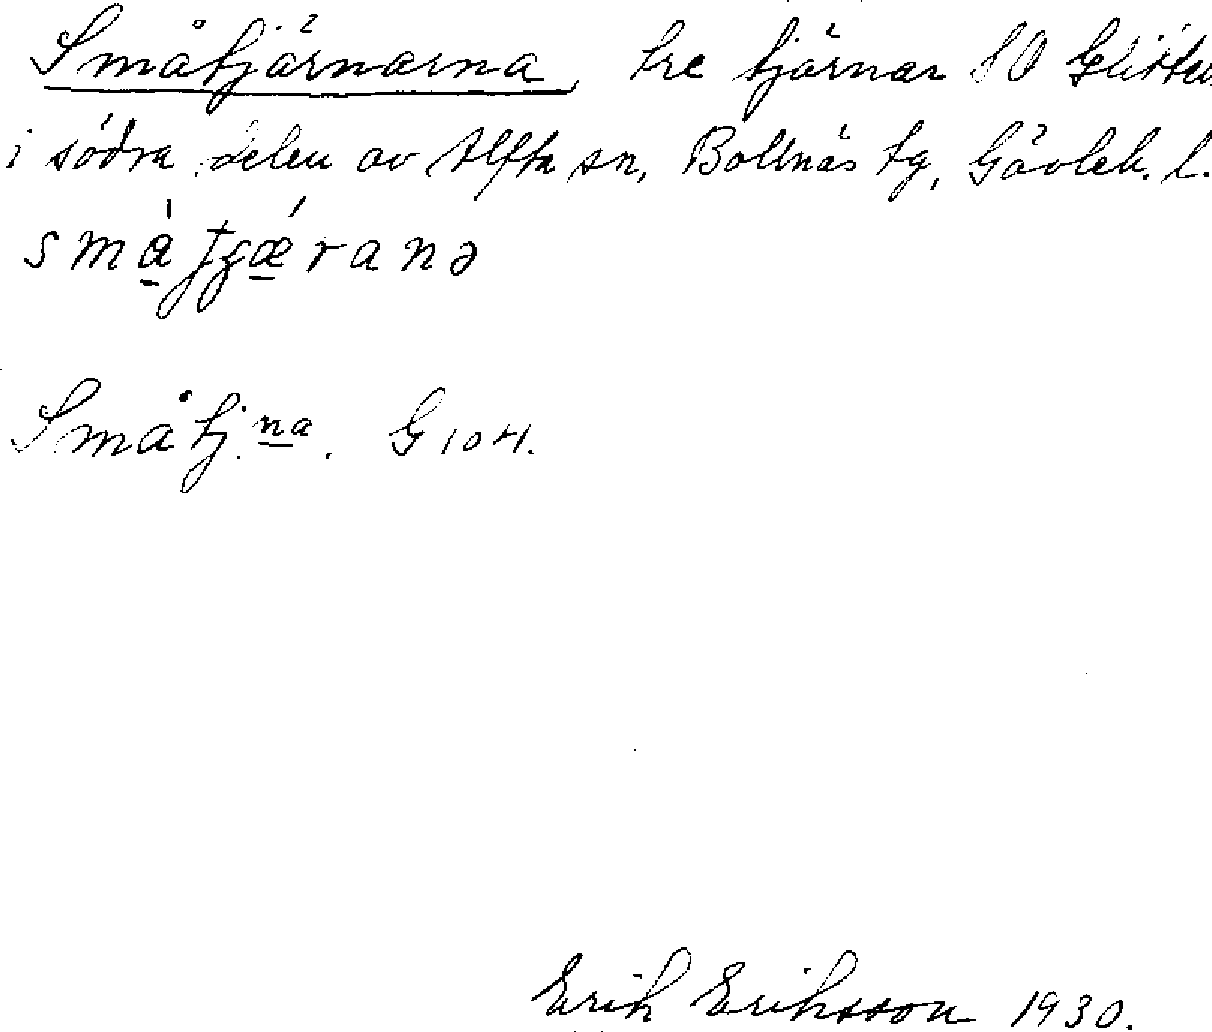 Småtjärnarna, tre tjärnar SO
i södra delen av Alfta sn, Bollnäs tg, Gävleb. l.
Småtj.na. G 104.
Erik Eriksson 1930.